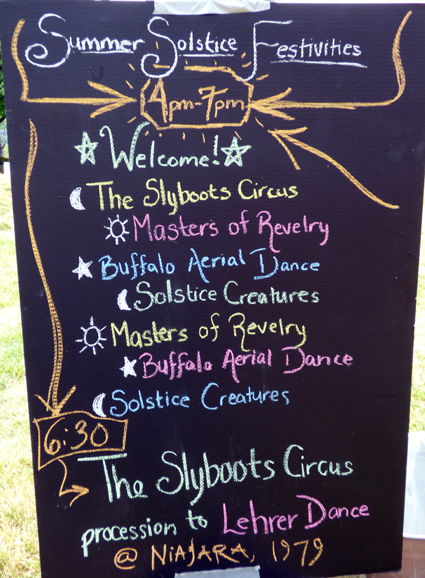 Summer Solstice Festivities
4pm-7pm
Welcome!
The Slyboots Circus
Masters of Revelry
Buffalo Aerial Dance
Solstice Creatures
Masters of Revelry
Buffalo Aerial Dance
Solstice Creatures
6:30
The Slyboots Circus
procession to Lehrer Dance
@ NIAGARA, 1979